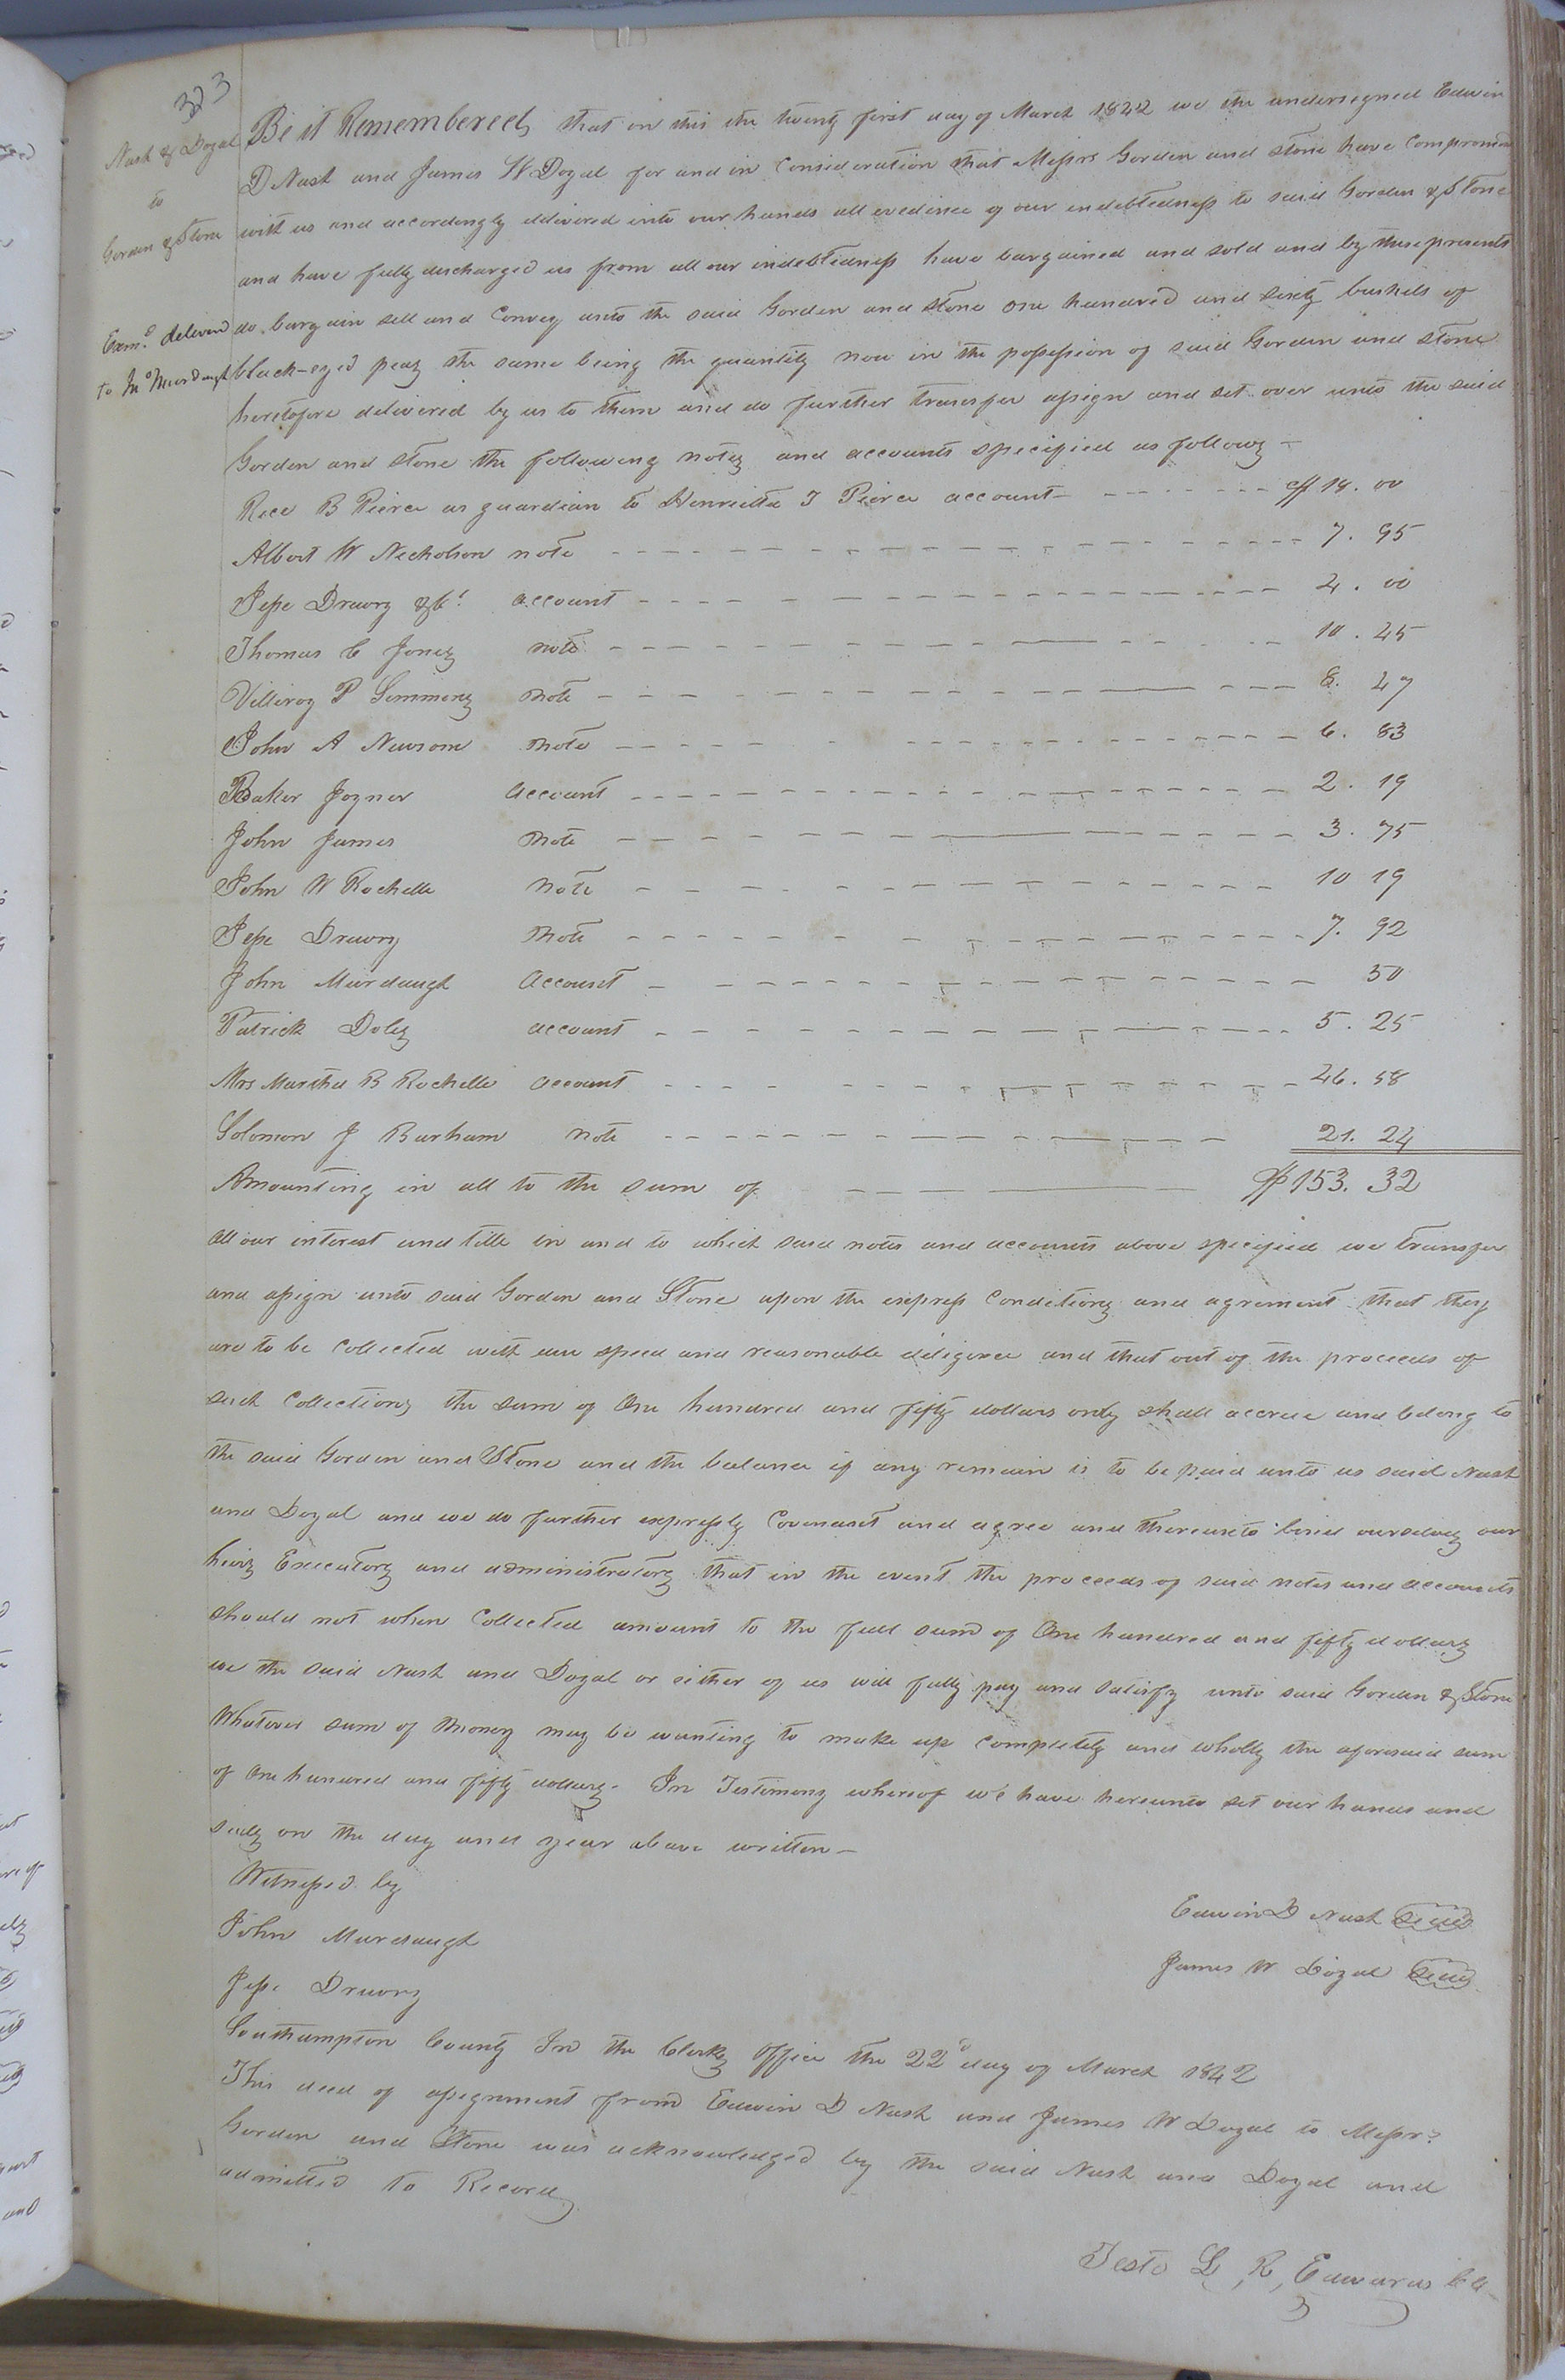 323
Nash & Doyal
to
Gorden & Stone
Exm.d deliverd
to Mr Murdaugh
Be it Remembered that on this the twenty first day of March 1842 we the undersigned Edwin
D Nash and James W Doyal for and in Consideration that Messrs Gorden and stone have Compromised
with us and accordingly delivered into our hands all evedince of our indebtedness to said Gorden & Stone
and have fully discharged us from all our indebtedness have bargained and sold and by these presents
do bargain sell and Convey unto the said Gorden and stone one hundred and sixty bushels of
black-eyed peas the same being the quantity now in the possession of said Gorden and stone
heretofore delivered by us to them and do further transfer assign and set over unto the said
Gorden and stone the following notes and accounts specified as follows —
Rice B Pierce as guardian to Henrietta T Pierce account $18.00
Albert W Nicholson note 7.95
Jesse Drewry & Co account 4.00
Thomas C Jones note 10.45
Villeroy P Simmons note 6.47
John A Newsom note 6.83
Baker Joyner account 2.19
John James note 3.75
John W Rochelle note 10 19
Jesse Drewry note 7.92
John Murdaugh account 50
Patrick Doles account 5.25
Mrs Martha B Rochelle account 46.58
Solomon J Barham note 21.24
Amounting in all to the sum of $153.32
all our interest and title in and to which said notes and accounts above specified we transfer
and assign unto said Gorden and Stone upon the express Conditions and agrement that they
are to be Collected with due speed and reasonable diligence and that out of the proceeds of
such Collections the sum of One hundred and fifty dollars only shall accrue and belong to
the said Gorden and Stone and the balance if any remain is to be paid unto us said Nash
and Doyal and we do further expressly Covenant and agree and thereunto bind ourselves our
heirs Executors and administrators that in the event the proceeds of said notes and accounts
should not when Collected amount to the full sum of One hundred and fifty dollars
we the said Nash and Doyal or either of us will fully pay and satisfy unto said Gorden & Stone
Whatever sum of money may be wanting to make up completely and wholly the aforesaid sum
of One hundred and fifty dollars. In Testimony whereof we have hereunto set our hands and
seals on the day and year above written —
Witnessed by
John Murdaugh
Jesse Drewry
Edwin D Nash Seal
James W Doyal Seal
Southampton County In the Clerks Office the 22d day of March 1842
This deed of assignment from Edwin D Nash and James W Doyal to Messrs
Gorden and Stone was acknowledged by the said Nash and Doyal and
admitted to Record
Teste L R Edwards Clk